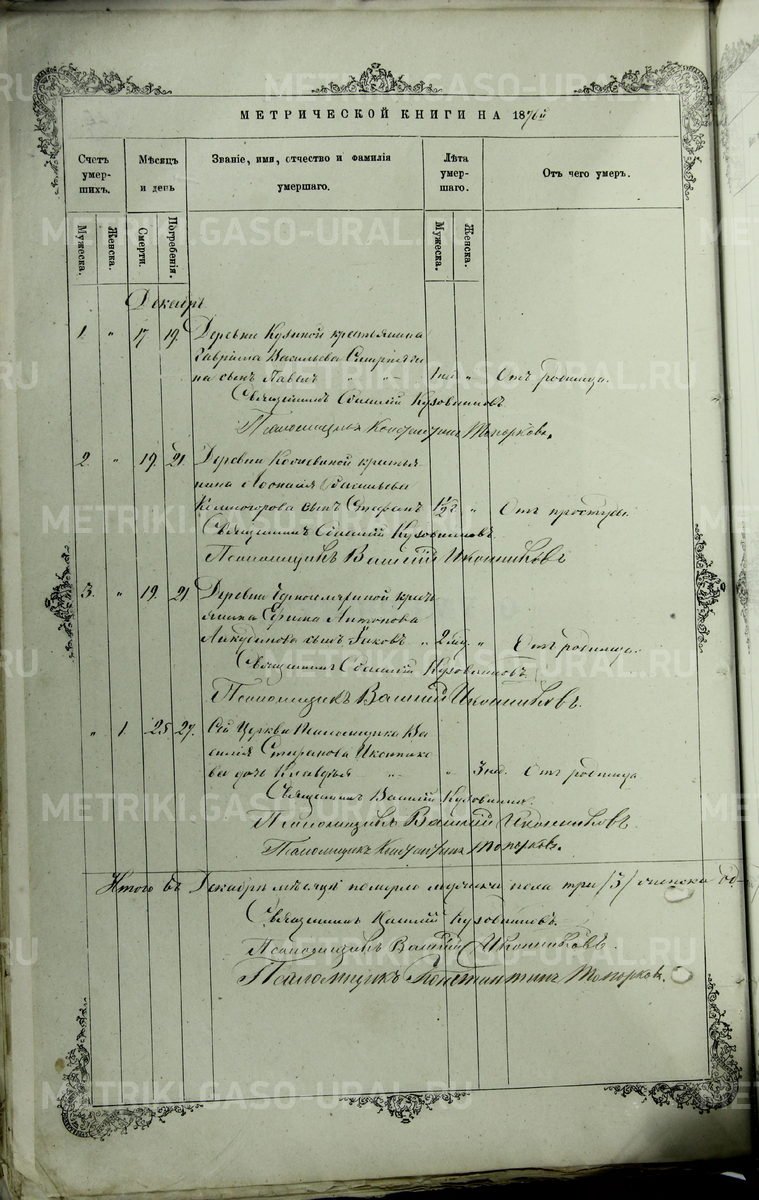 METRIKI.GASO-URAL.RU
МЕТРИЧЕСКОЙ КНИГИ НА 1876й
Счетъ умер-шихъ.
Мѣсяцъ и день
Званіе, имя, отчество и фамилія умершаго.
Лѣта умер-шаго.
Отъ чего умеръ.
Мужеска.
Женска.
Смерти.
Погребенія.
Мужеска.
Женска.
Декабрь
1. " 17 19. Деревни Кузиной крестьянина
Гавріила Васильева
на сынъ Павелъ " " 1 нед. " Отъ родимца.
Священникъ Василій Кузовниковъ
Псаломщикъ Константинъ Топорковъ.
2. " 19. 21. Деревни крестья-
нина Васильева
сынъ Стефанъ 1½г " Отъ простуды.
Священникъ Василій Кузовниковъ.
Псаломщикъ Василій Иконниковъ
3. " 19. 21 Деревни крест-
янина Ефима Антонова
сынъ Іаковъ " 2 " Отъ родимца.
Священникъ Василій Кузовниковъ.
Псаломщикъ Василій Иконниковъ.
" 1. 25. 27. Сей Церкви Псаломщика Ва-
силія Стефанова Иконнико-
ва дочь Клавдія " " 3 нед. Отъ родимца
Священникъ Василій Кузовниковъ.
Псаломщикъ Василій Иконниковъ.
Псаломщикъ Константинъ Топорковъ.
Итого въ Декабрѣ мѣсяцѣ померло мужеска пола три /3/ женска од-
Священникъ Василій Кузовниковъ.
Псаломщикъ Василій Иконниковъ.
Псаломщикъ Константинъ Топорковъ.